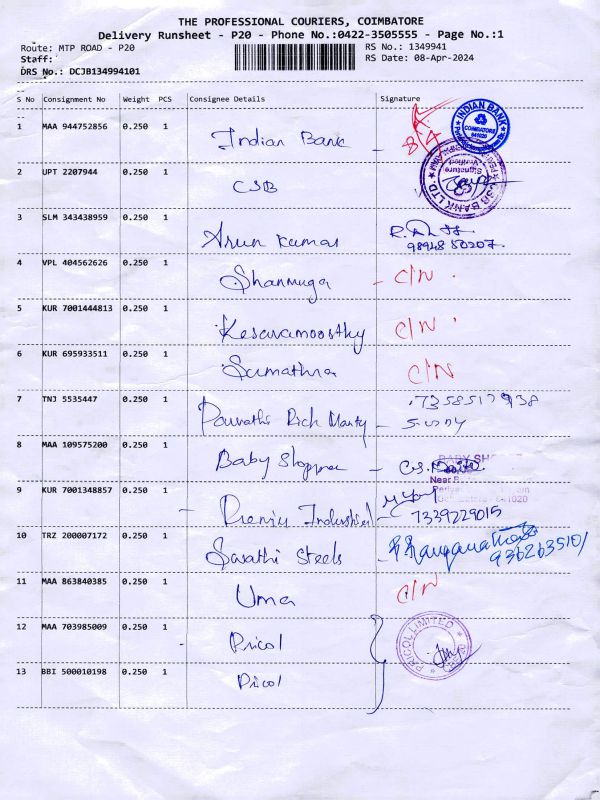 THE PROFESSIONAL COURIERS, COIMBATORE
Delivery Runsheet - P20 - Phone No.:0422-3505555 - Page No.:1
Route: MTP ROAD - P20 RS No.: 1349941
Staff: RS Date: 08-Apr-2024
DRS No.: DCJB134994101
S No Consignment No Weight PCS Consignee Details Signature
1 MAA 944752856 0.250 1 Indian Bank - 8/4 INDIAN BANK COIMBATORE
2 UPT 2207944 0.250 1 CSB CSB BANK LTD Signature Verified
3 SLM 343438959 0.250 1 Arun kumar
98948 50207
4 VPL 404562626 0.250 1 Shanmuga - C/N
5 KUR 7001444813 0.250 1 Kesavamoorthy C/N
6 KUR 695933511 0.250 1 Sumathra C/N
7 TNJ 5535447 0.250 1 Rich -
8 MAA 109575200 0.250 1 Baby Shoppee - C.S. BABY
Near
641020
9 KUR 7001348857 0.250 1 - Industrial
7339229015
10 TRZ 200007172 0.250 1 Sarathi Steels -
9362635101
11 MAA 863840385 0.250 1 Uma C/N
12 MAA 703985009 0.250 1 Pricol PRICOL LIMITED
13 BBI 500010198 0.250 1 Pricol